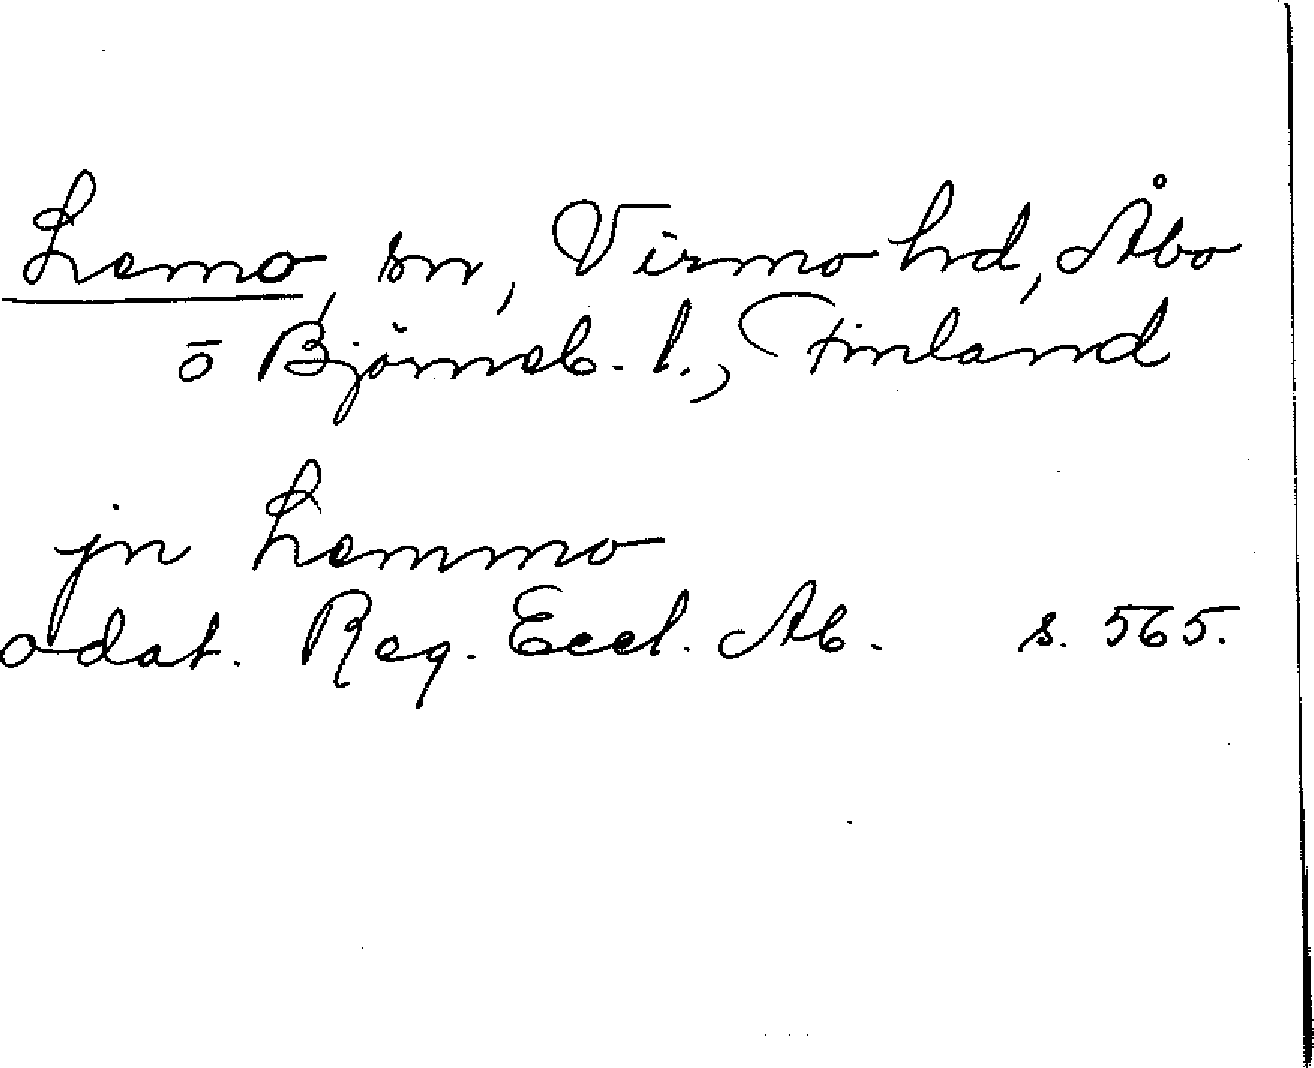 Lemo, sn, Virmo hd, Åbo
o Björneb. l., Finland
jn Lemmo
odat. Reg. Eccl. Ab. s. 565.